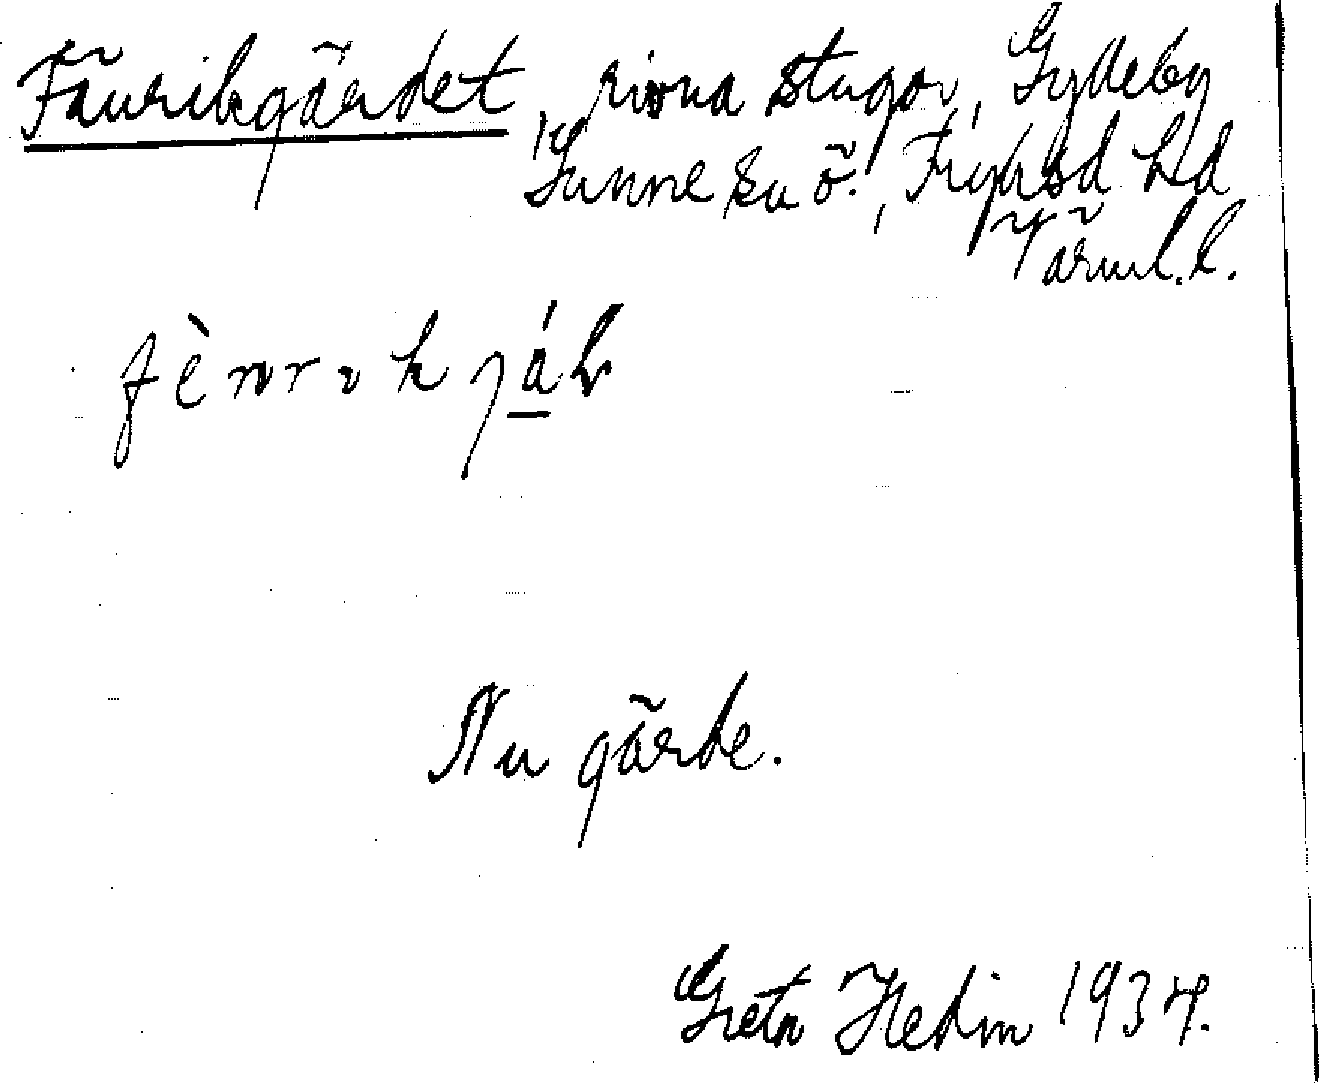 Fänrikgärdet, rivna stugor, Gydeby
Sunne sn ö., Fryksd hd
Värml. l.
Nu gärde.
Greta Hedin 1934.